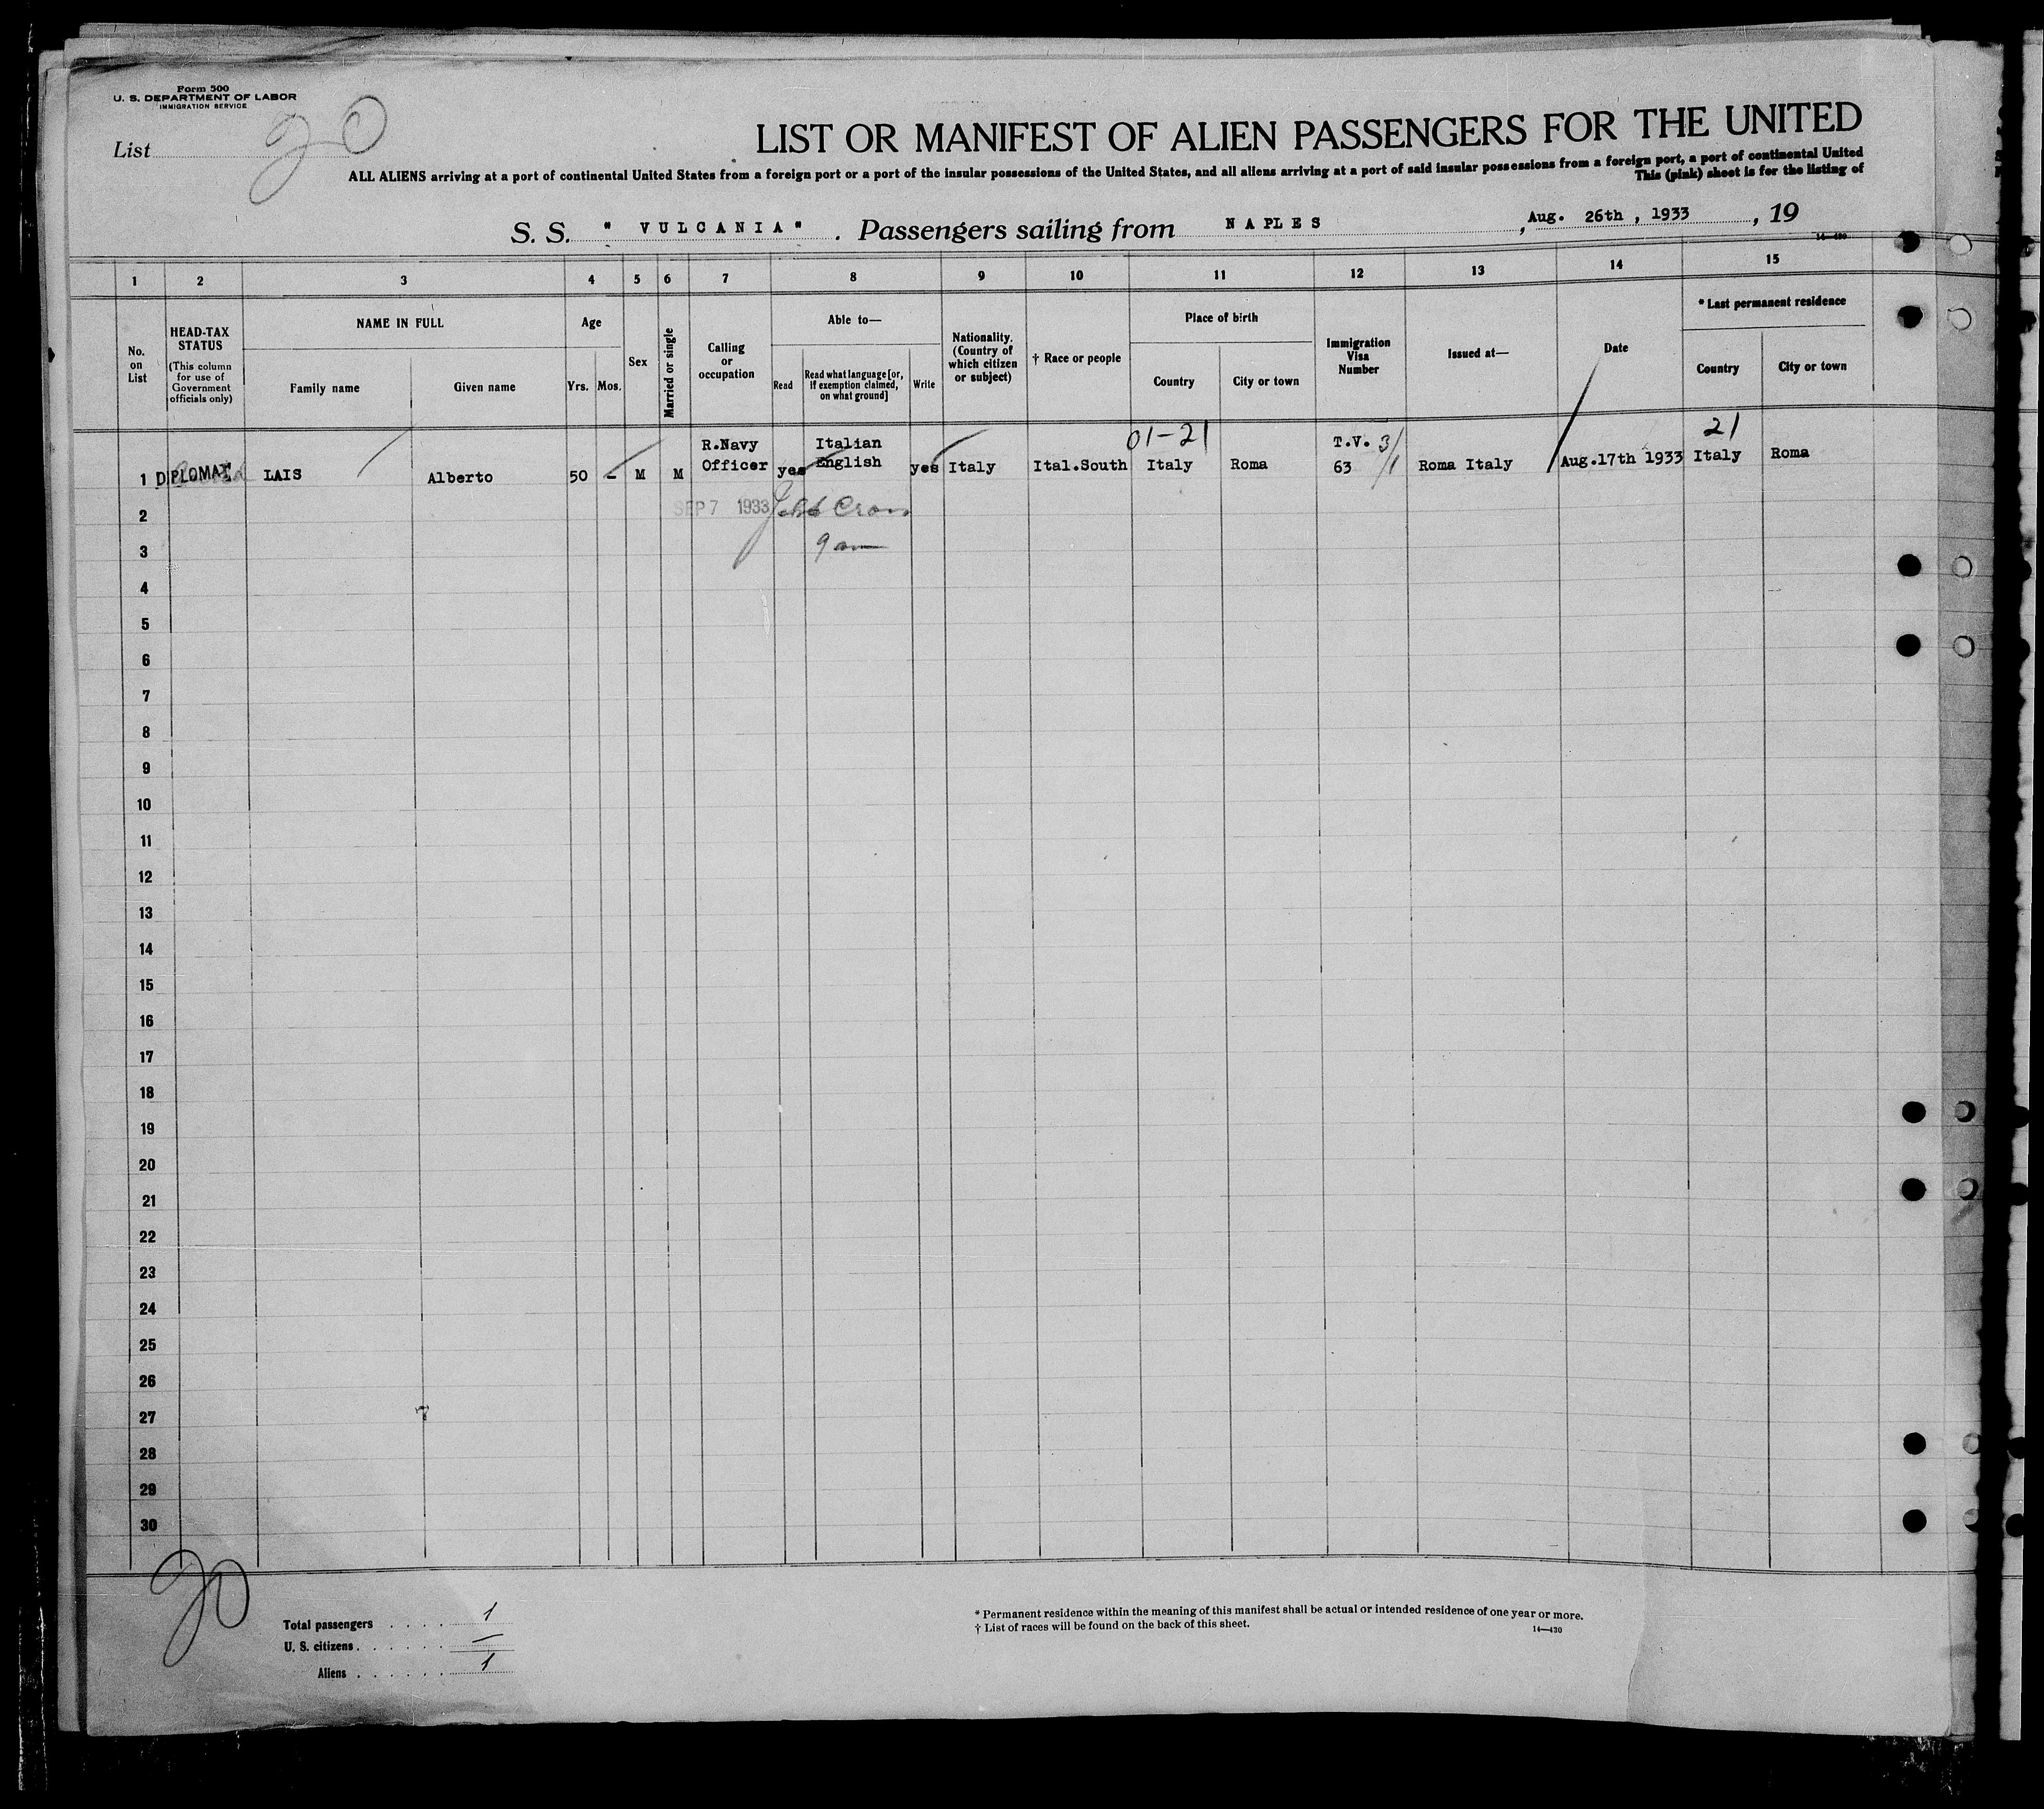 Form 500
U. S. DEPARTMENT OF LABOR
IMMIGRATION SERVICE
List 20
LIST OR MANIFEST OF ALIEN PASSENGERS FOR THE UNITED
ALL ALIENS arriving at a port of continental United States from a foreign port or a port of the insular possessions of the United States, and all aliens arriving at a port of said insular possessions from a foreign port, a port of continental United
This (pink) sheet is for the listing of
S. S. " VULCANIA" . Passengers sailing from NAPLES , Aug. 26th , 1933 , 19
14—430
1 2 3 4 5 6 7 8 9 10 11 12 13 14 15
No. on List
HEAD-TAX STATUS
(This column for use of Government officials only)
NAME IN FULL
Family name
Given name
Age
Yrs. Mos.
Sex
Married or single
Calling or occupation
Able to—
Read
Read what language [or, if exemption claimed, on what ground]
Write
Nationality. (Country of which citizen or subject)
† Race or people
Place of birth
Country
City or town
Immigration Visa Number
Issued at—
Date
* Last permanent residence
Country
City or town
01-21
21
1 DIPLOMAT LAIS Alberto 50 - M M R.Navy Officer yes Italian English yes Italy Ital.South Italy Roma T.V. 63 3/1 Roma Italy Aug.17th 1933 Italy Roma
2 SEP 7 1933
3 9 am
4
5
6
7
8
9
10
11
12
13
14
15
16
17
18
19
20
21
22
23
24
25
26
27
28
29
30
20
Total passengers . . . . 1
U. S. citizens . . . . . . —
Aliens . . . . . . 1
* Permanent residence within the meaning of this manifest shall be actual or intended residence of one year or more.
† List of races will be found on the back of this sheet.
14—430